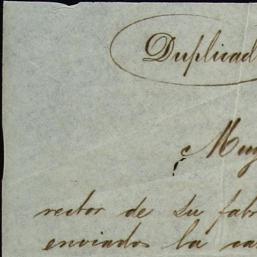 Duplicad
Muy
rector de su fabr
enviados la ca